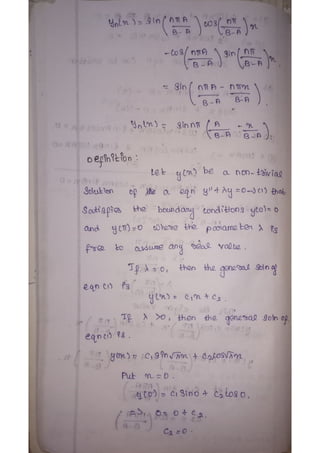 yn(x) = sin (nπA / B-A) cos (nπ / B-A) x
- cos (nπA / B-A) sin (nπ / B-A) x
= sin (nπA / B-A - nπx / B-A).
yn(x) = sin nπ (A / B-A - x / B-A).
Definition:
Let y(x) be a non-trivial
solution of a eqn y"+λy=0→(1) that
satisfies the boundary conditions y(0)=0
and y(π)=0 where the parameter λ is
free to assume any real value.
If λ=0, then the general soln of
eqn (1) is
y(x) = c₁x + c₂.
If λ>0, then the general soln of
eqn (1) is.
y(x) = c₁sin√λx + c₂cos√λx
Put x=0.
y(0) = c₁ sin0 + c₂ cos0.
0 = 0 + c₂.
c₂ = 0.